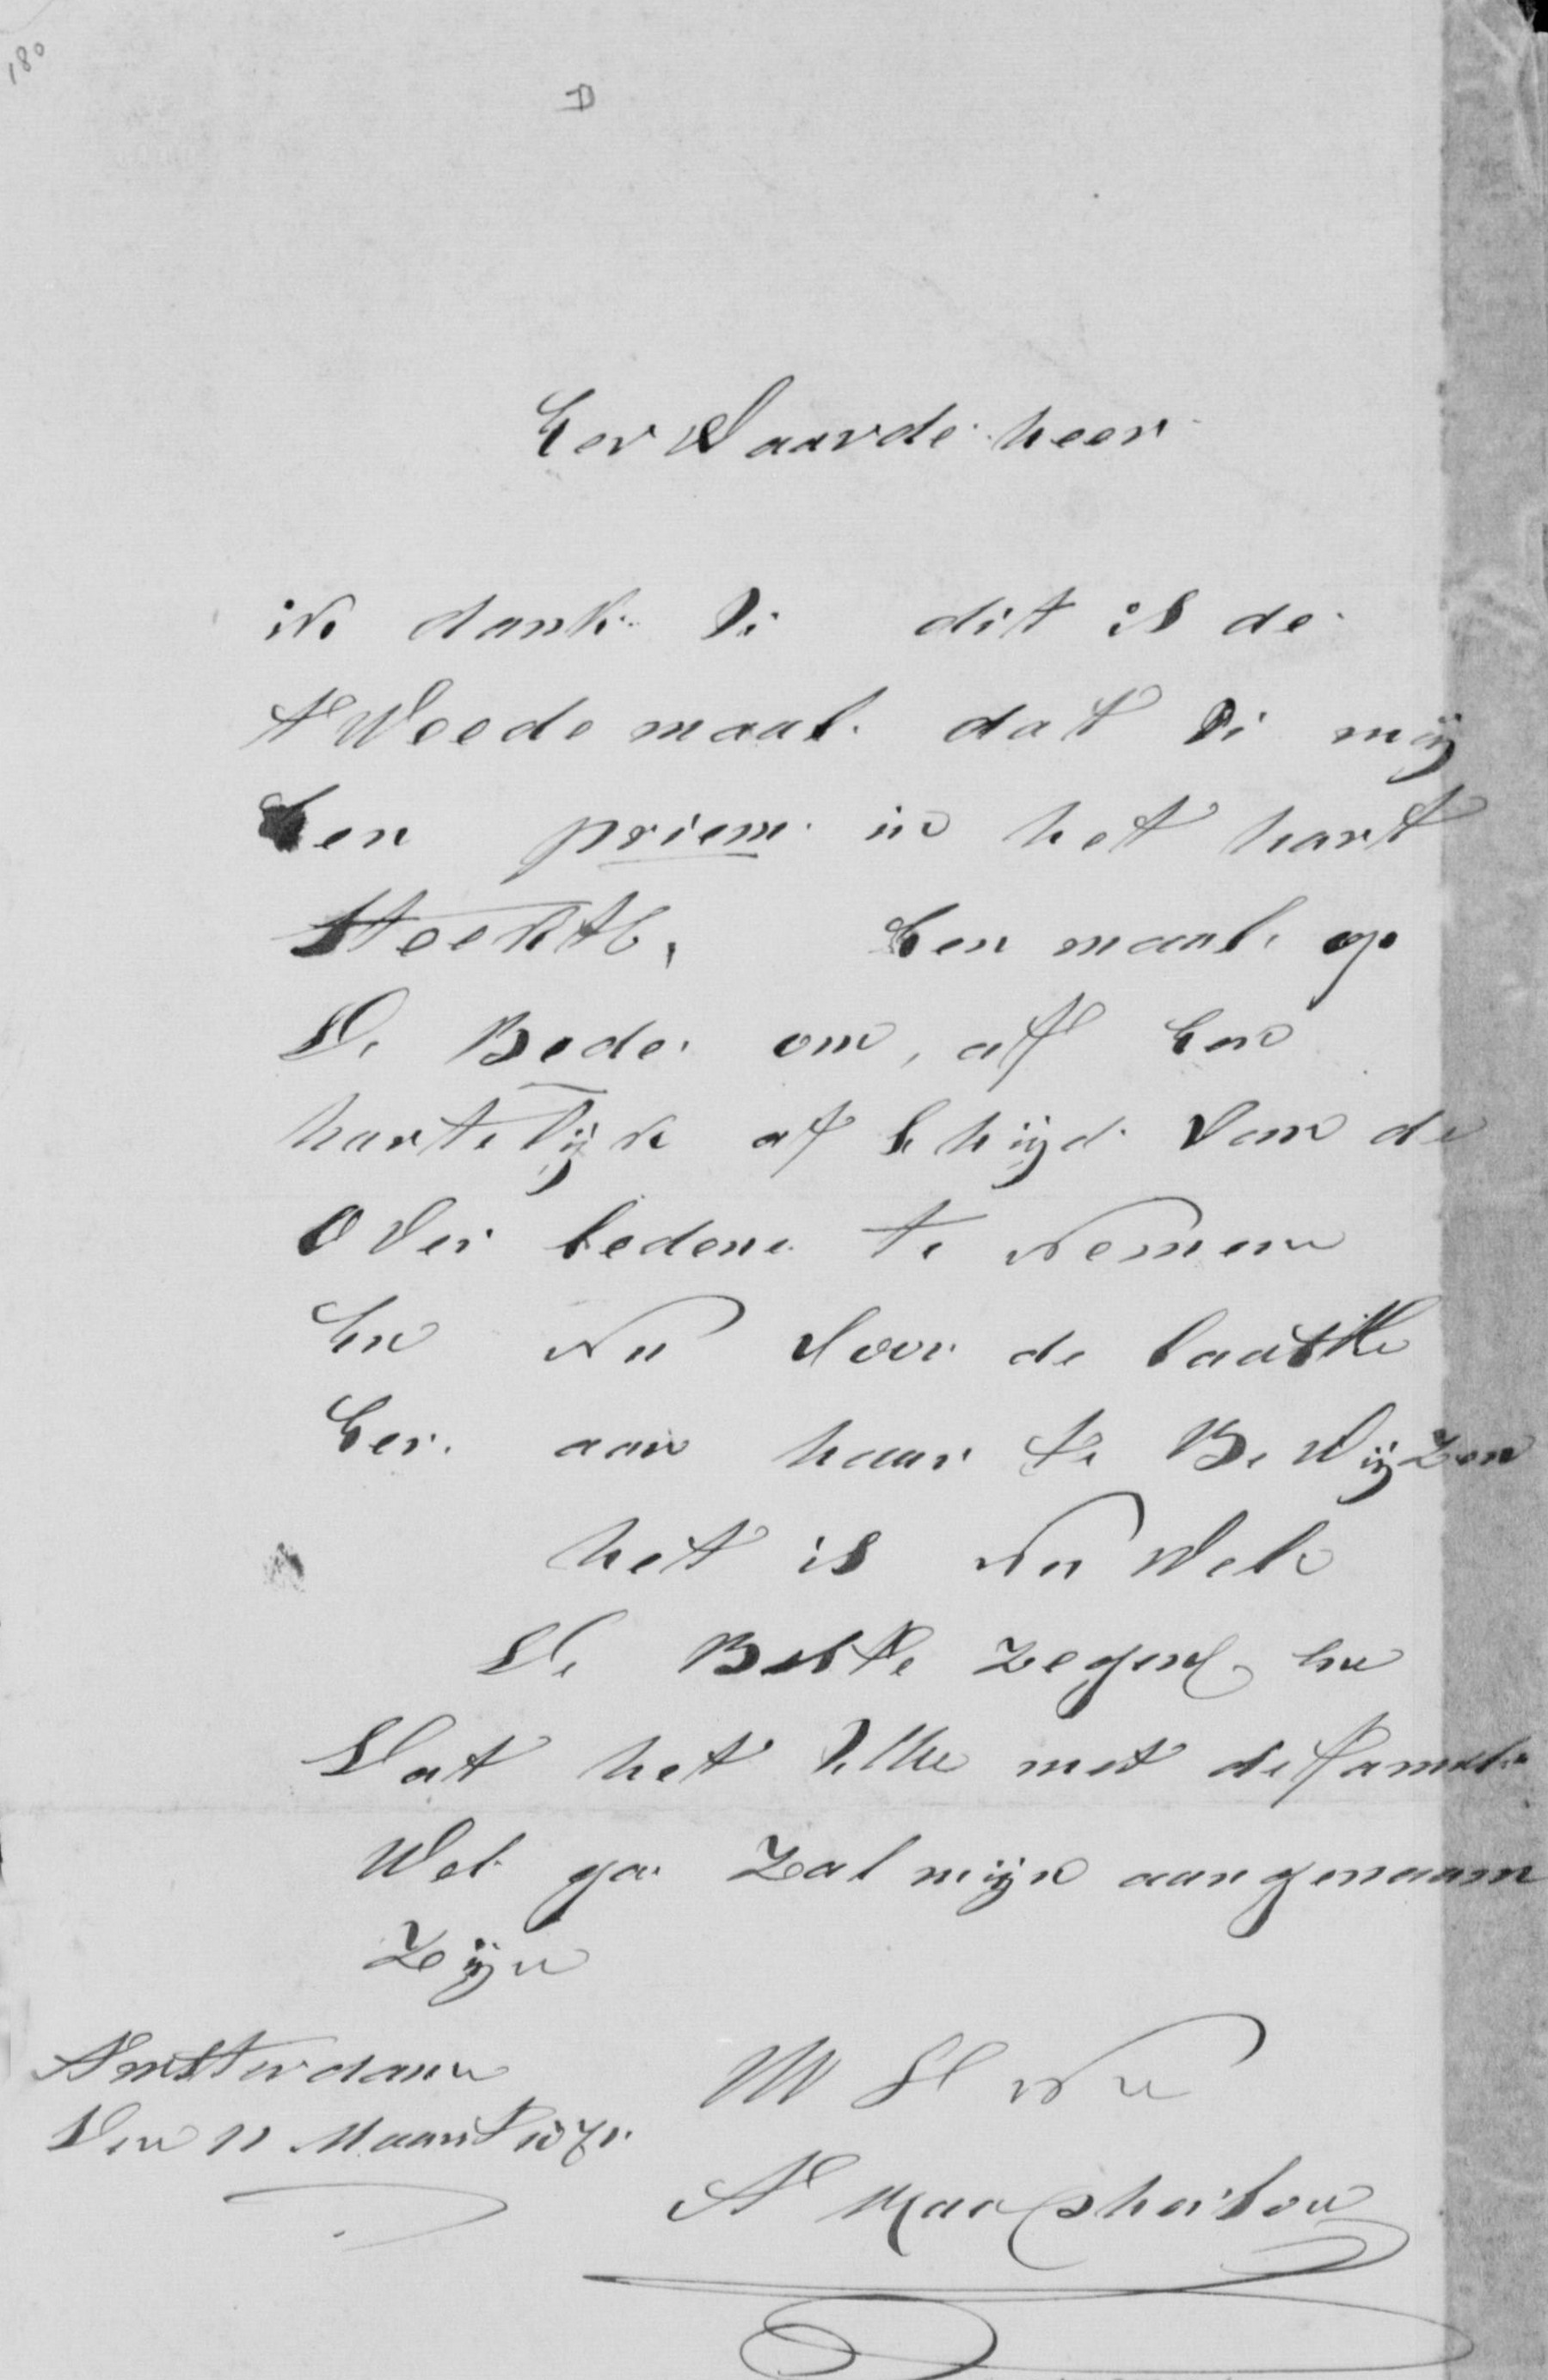 180
D
Eer Waarde heer
ik dank U dit is de
tWeede maal dat U mij
Een priem in het hart
steekth, Een maal op
De Bede om, af Een
hartelijk af schijd Van de
OVer ledene te Nemen
En Nu Voor de laatste
Eer aan haar te Be Wijzen
het is Nu Wel
De Beste zegend En
Dat het Ulhe met de famile
Wel ga Zal mijn aangenaam
Zijn
Amsterdam
Den 11 Maart